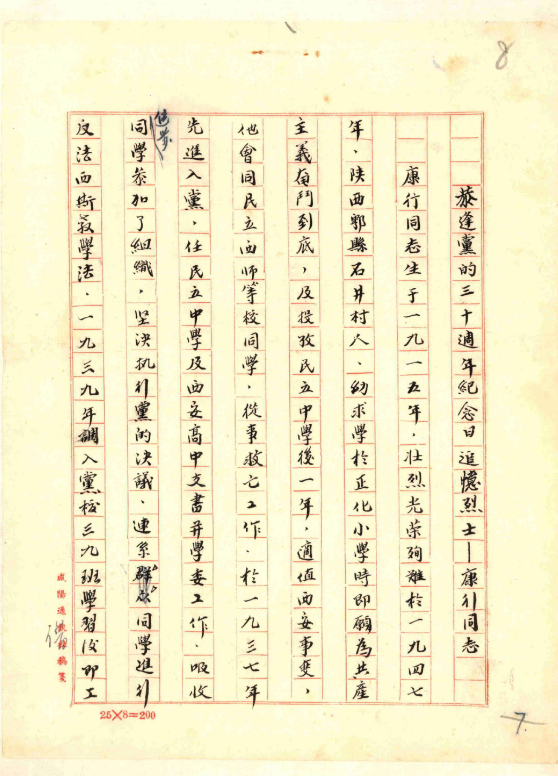 8
恭逢黨的三十週年紀念日追憶烈士——康行同志
康行同志生于一九一五年,壯烈光荣殉難於一九四七
年、陕西鄠縣石井村人、幼求学於正化小學時即願為共產
主義奋鬥到底,及投攷民立中學後一年,適值西安事变,
他會同民立西師等校同學,從事救亡工作.於一九三七年
先進入黨,任民立中學及西安高中文書并學委工作.吸收
進步
同學參加了組織,坚决执行黨的决議、連系群众同學進行
反法西斯教學法.一九三九年調入黨校三九班學習後即工
咸陽
稿箋
25×8=200
7.